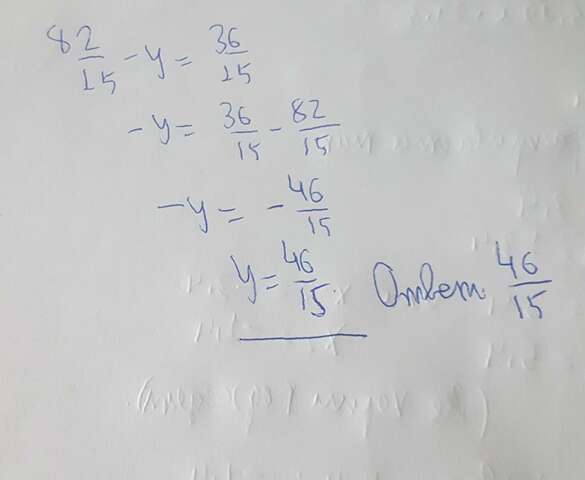 82/15 - y = 36/15
-y = 36/15 - 82/15
-y = - 46/15
y = 46/15 Ответ 46/15